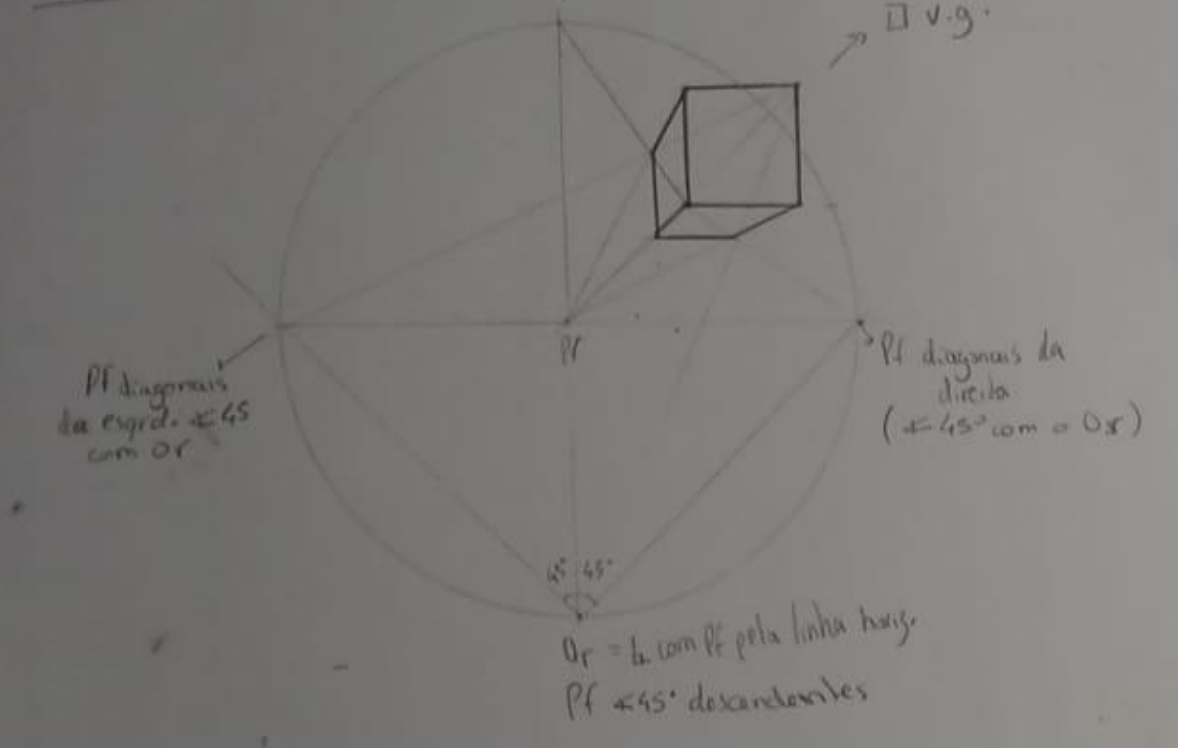 □ v.g.
Pf
Pf diagonais
da esqrd. ∢ 45
com Or
Pf diagonais da
direita
(∢ 45° com o Or)
45° 45°
Or = com Pf pela linha horiz.
Pf ∢45° descendentes